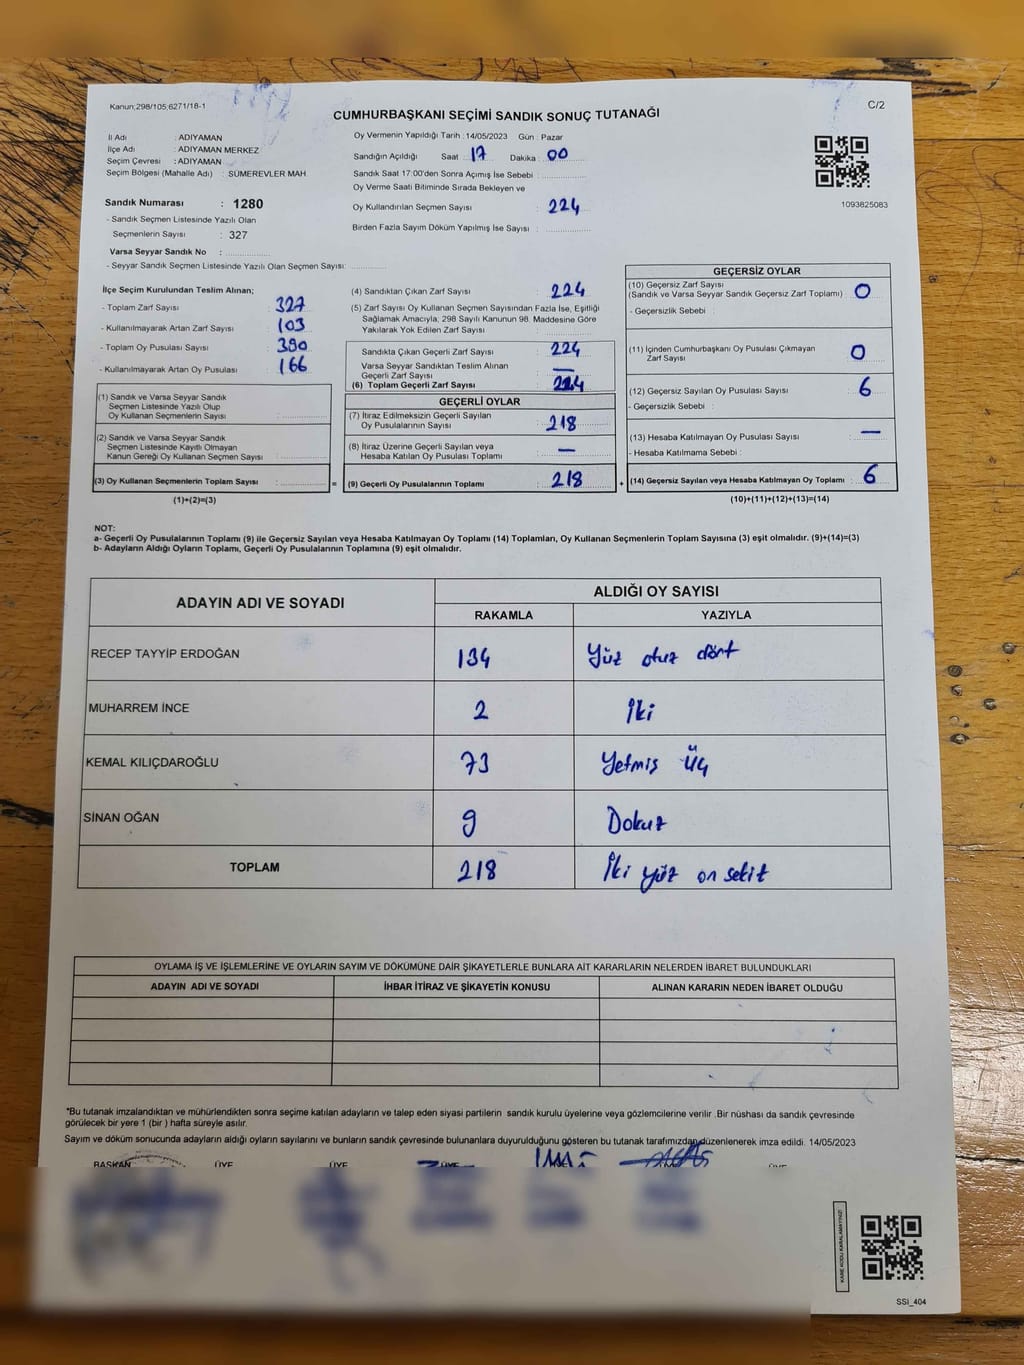 Kanun;298/105;6271/18-1
C/2
CUMHURBAŞKANI SEÇİMİ SANDIK SONUÇ TUTANAĞI
İl Adı : ADIYAMAN
İlçe Adı : ADIYAMAN MERKEZ
Seçim Çevresi : ADIYAMAN
Seçim Bölgesi (Mahalle Adı) : SÜMEREVLER MAH.
Sandık Numarası : 1280
- Sandık Seçmen Listesinde Yazılı Olan
Seçmenlerin Sayısı : 327
Varsa Seyyar Sandık No :
- Seyyar Sandık Seçmen Listesinde Yazılı Olan Seçmen Sayısı:
Oy Vermenin Yapıldığı Tarih :14/05/2023 Gün : Pazar
Sandığın Açıldığı Saat 17 Dakika 00
Sandık Saat 17:00'den Sonra Açımış İse Sebebi :
Oy Verme Saati Bitiminde Sırada Bekleyen ve
Oy Kullandırılan Seçmen Sayısı : 224
Birden Fazla Sayım Döküm Yapılmış İse Sayısı :
1093825083
İlçe Seçim Kurulundan Teslim Alınan;
- Toplam Zarf Sayısı : 327
- Kullanılmayarak Artan Zarf Sayısı : 103
- Toplam Oy Pusulası Sayısı : 390
- Kullanılmayarak Artan Oy Pusulası : 166
(1) Sandık ve Varsa Seyyar Sandık
Seçmen Listesinde Yazılı Olup
Oy Kullanan Seçmenlerin Sayısı :
(2) Sandık ve Varsa Seyyar Sandık
Seçmen Listesinde Kayıtlı Olmayan
Kanun Gereği Oy Kullanan Seçmen Sayısı :
(3) Oy Kullanan Seçmenlerin Toplam Sayısı : =
(1)+(2)=(3)
(4) Sandıktan Çıkan Zarf Sayısı : 224
(5) Zarf Sayısı Oy Kullanan Seçmen Sayısından Fazla İse, Eşitliği
Sağlamak Amacıyla, 298 Sayılı Kanunun 98. Maddesine Göre
Yakılarak Yok Edilen Zarf Sayısı :
Sandıkta Çıkan Geçerli Zarf Sayısı : 224
Varsa Seyyar Sandıktan Teslim Alınan
Geçerli Zarf Sayısı : —
(6) Toplam Geçerli Zarf Sayısı : 224
GEÇERLİ OYLAR
(7) İtiraz Edilmeksizin Geçerli Sayılan
Oy Pusulalarının Sayısı : 218
(8) İtiraz Üzerine Geçerli Sayılan veya
Hesaba Katılan Oy Pusulası Toplamı : —
(9) Geçerli Oy Pusulalarının Toplamı : 218 +
GEÇERSİZ OYLAR
(10) Geçersiz Zarf Sayısı
(Sandık ve Varsa Seyyar Sandık Geçersiz Zarf Toplamı) : 0
- Geçersizlik Sebebi :
(11) İçinden Cumhurbaşkanı Oy Pusulası Çıkmayan
Zarf Sayısı : 0
(12) Geçersiz Sayılan Oy Pusulası Sayısı : 6
- Geçersizlik Sebebi :
(13) Hesaba Katılmayan Oy Pusulası Sayısı : —
- Hesaba Katılmama Sebebi :
(14) Geçersiz Sayılan veya Hesaba Katılmayan Oy Toplamı : 6
(10)+(11)+(12)+(13)=(14)
NOT:
a- Geçerli Oy Pusulalarının Toplamı (9) ile Geçersiz Sayılan veya Hesaba Katılmayan Oy Toplamı (14) Toplamları, Oy Kullanan Seçmenlerin Toplam Sayısına (3) eşit olmalıdır. (9)+(14)=(3)
b- Adayların Aldığı Oyların Toplamı, Geçerli Oy Pusulalarının Toplamına (9) eşit olmalıdır.
ADAYIN ADI VE SOYADI
ALDIĞI OY SAYISI
RAKAMLA YAZIYLA
RECEP TAYYİP ERDOĞAN 134 Yüz otuz dört
MUHARREM İNCE 2 İki
KEMAL KILIÇDAROĞLU 73 Yetmiş Üç
SİNAN OĞAN 9 Dokuz
TOPLAM 218 İki yüz on sekiz
OYLAMA İŞ VE İŞLEMLERİNE VE OYLARIN SAYIM VE DÖKÜMÜNE DAİR ŞİKAYETLERLE BUNLARA AİT KARARLARIN NELERDEN İBARET BULUNDUKLARI
ADAYIN ADI VE SOYADI İHBAR İTİRAZ VE ŞİKAYETİN KONUSU ALINAN KARARIN NEDEN İBARET OLDUĞU
*Bu tutanak imzalandıktan ve mühürlendikten sonra seçime katılan adayların ve talep eden siyasi partilerin sandık kurulu üyelerine veya gözlemcilerine verilir .Bir nüshası da sandık çevresinde
görülecek bir yere 1 (bir ) hafta süreyle asılır.
Sayım ve döküm sonucunda adayların aldığı oyların sayılarını ve bunların sandık çevresinde bulunanlara duyurulduğunu gösteren bu tutanak tarafımızdan düzenlenerek imza edildi. 14/05/2023
BAŞKAN ÜYE ÜYE ÜYE
KARE KODU KARALAMAYINIZ!
SSI_404